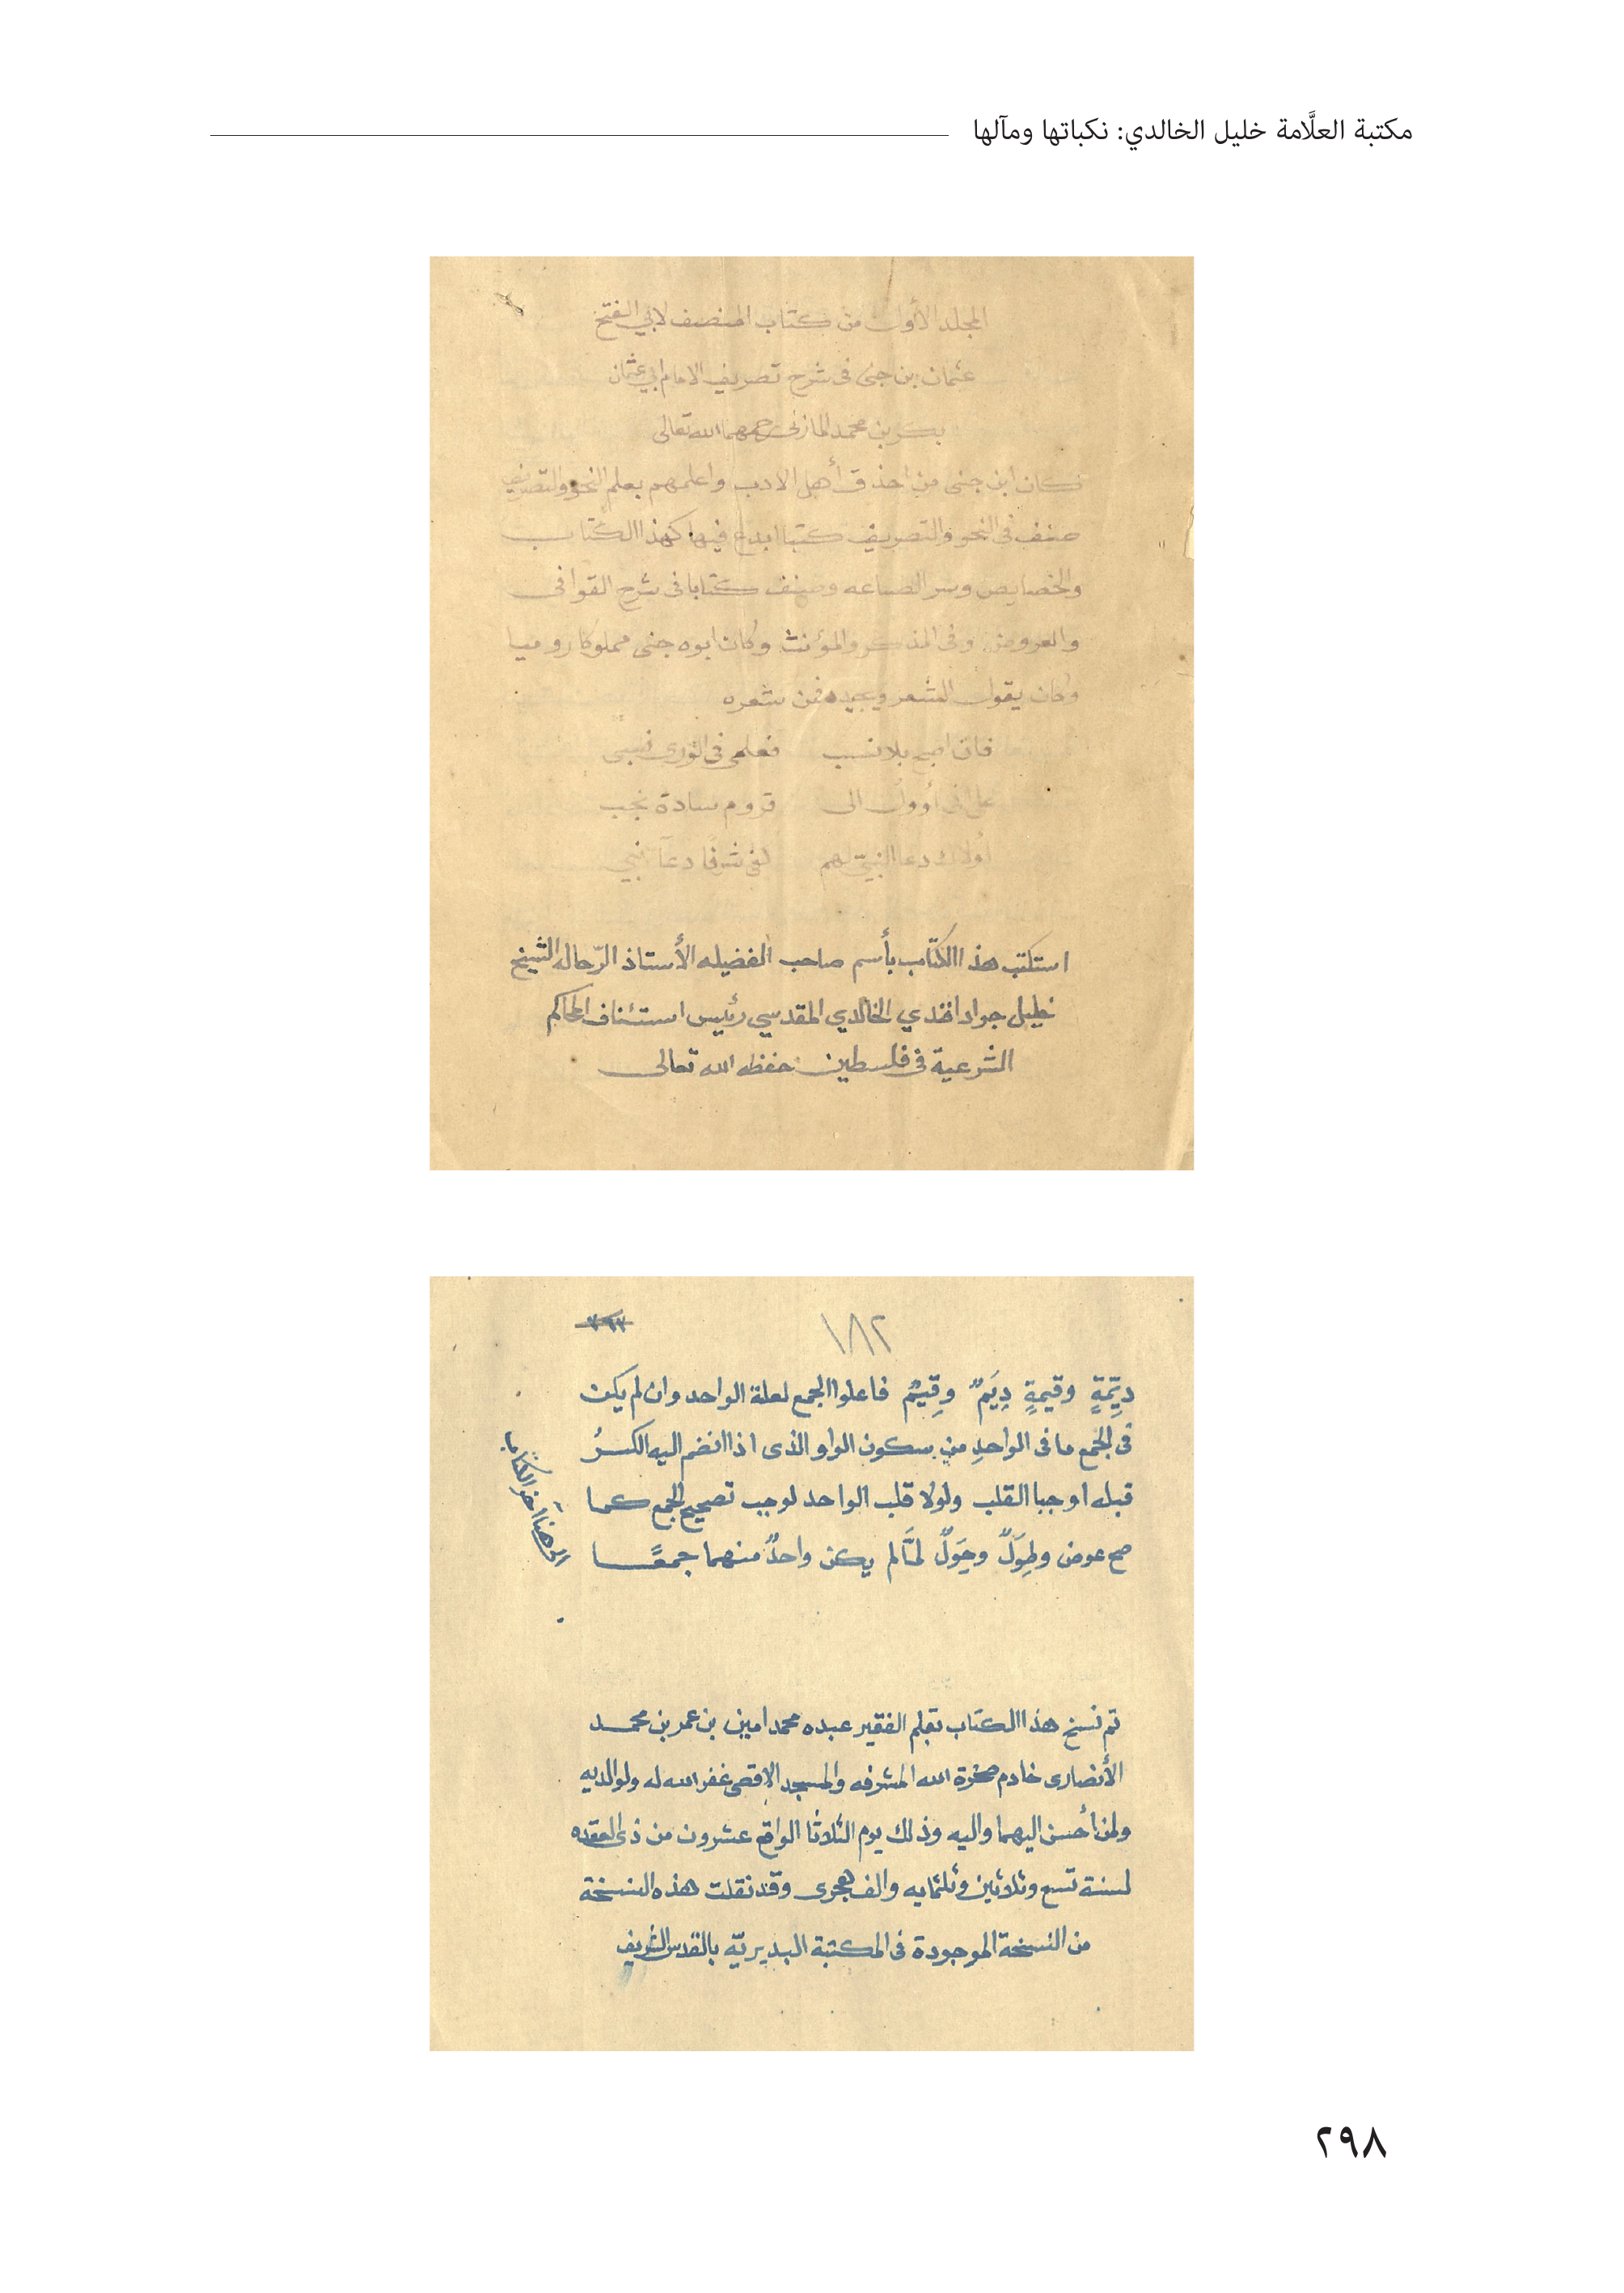 مكتبة العلَّامة خليل الخالدي: نكباتها ومآلها
المجلد الأول من كتاب المنصف لابي الفتح
عثمان بن جنى فى شرح تصريف الامام ابي عثمان
بكر بن محمد المازنى رحمهما الله تعالى
كان ابن جنى من احذق أهل الادب واعلمهم بعلم النحو والتصريف
صنف فى النحو والتصريف كتبا ابدع فيها كهذا الكتاب
والخصايص وسر الصناعه وصنف كتابا فى شرح القوافى
والعروض وفى المذكر والمؤنث وكان ابوه جنى مملوكا روميا
وكان يقول الشعر ويجيده فمن شعره
فان اصبح بلا نسب فعلمى فى الورى نسبى
على انى أوول الى قروم سادة نجب
أولاك دعا النبيّ لهم كفى شرفًا دعآ نبي
استكتب هذا الكتاب بأسم صاحب الفضيله الأستاذ الرّحاله الشيخ
خليل جواد افندي الخالدي المقدسي رئيس استئناف المحاكم
الشرعية فى فلسطين حفظه الله تعالى
٣٦٣
١٨٢
ديمَةٍ وقيمةٍ دِيَمٌ وقِيَمٌ فاعلوا الجمع لعلة الواحد وان لم يكن
فى الجمع ما فى الواحدِ من سكون الواو الذى اذا انضم اليه الكسرُ
قبله اوجبا القلب ولولا قلب الواحد لوجب تصحيح الجمع كما
صح عوض وطِوَلٌ وحِوَلٌ لمَّا لم يكن واحدٌ منهما جمعًا
الى هنا آخر الكتاب
تم نسخ هذا الكتاب بقلم الفقير عبده محمد امين بن عمر بن محمد
الأنصارى خادم صخرة الله المشرفه والمسجد الاقصى غفر الله له ولوالديه
ولمن أحسن اليهما واليه وذلك يوم الثلاثا الواقع عشرون من ذى القعده
لسنة تسع وثلاثين وثلثمايه والف هجرى وقد نقلت هذه النسخة
من النسخة الموجودة فى المكتبة البديريّه بالقدس الشريف
٢٩٨